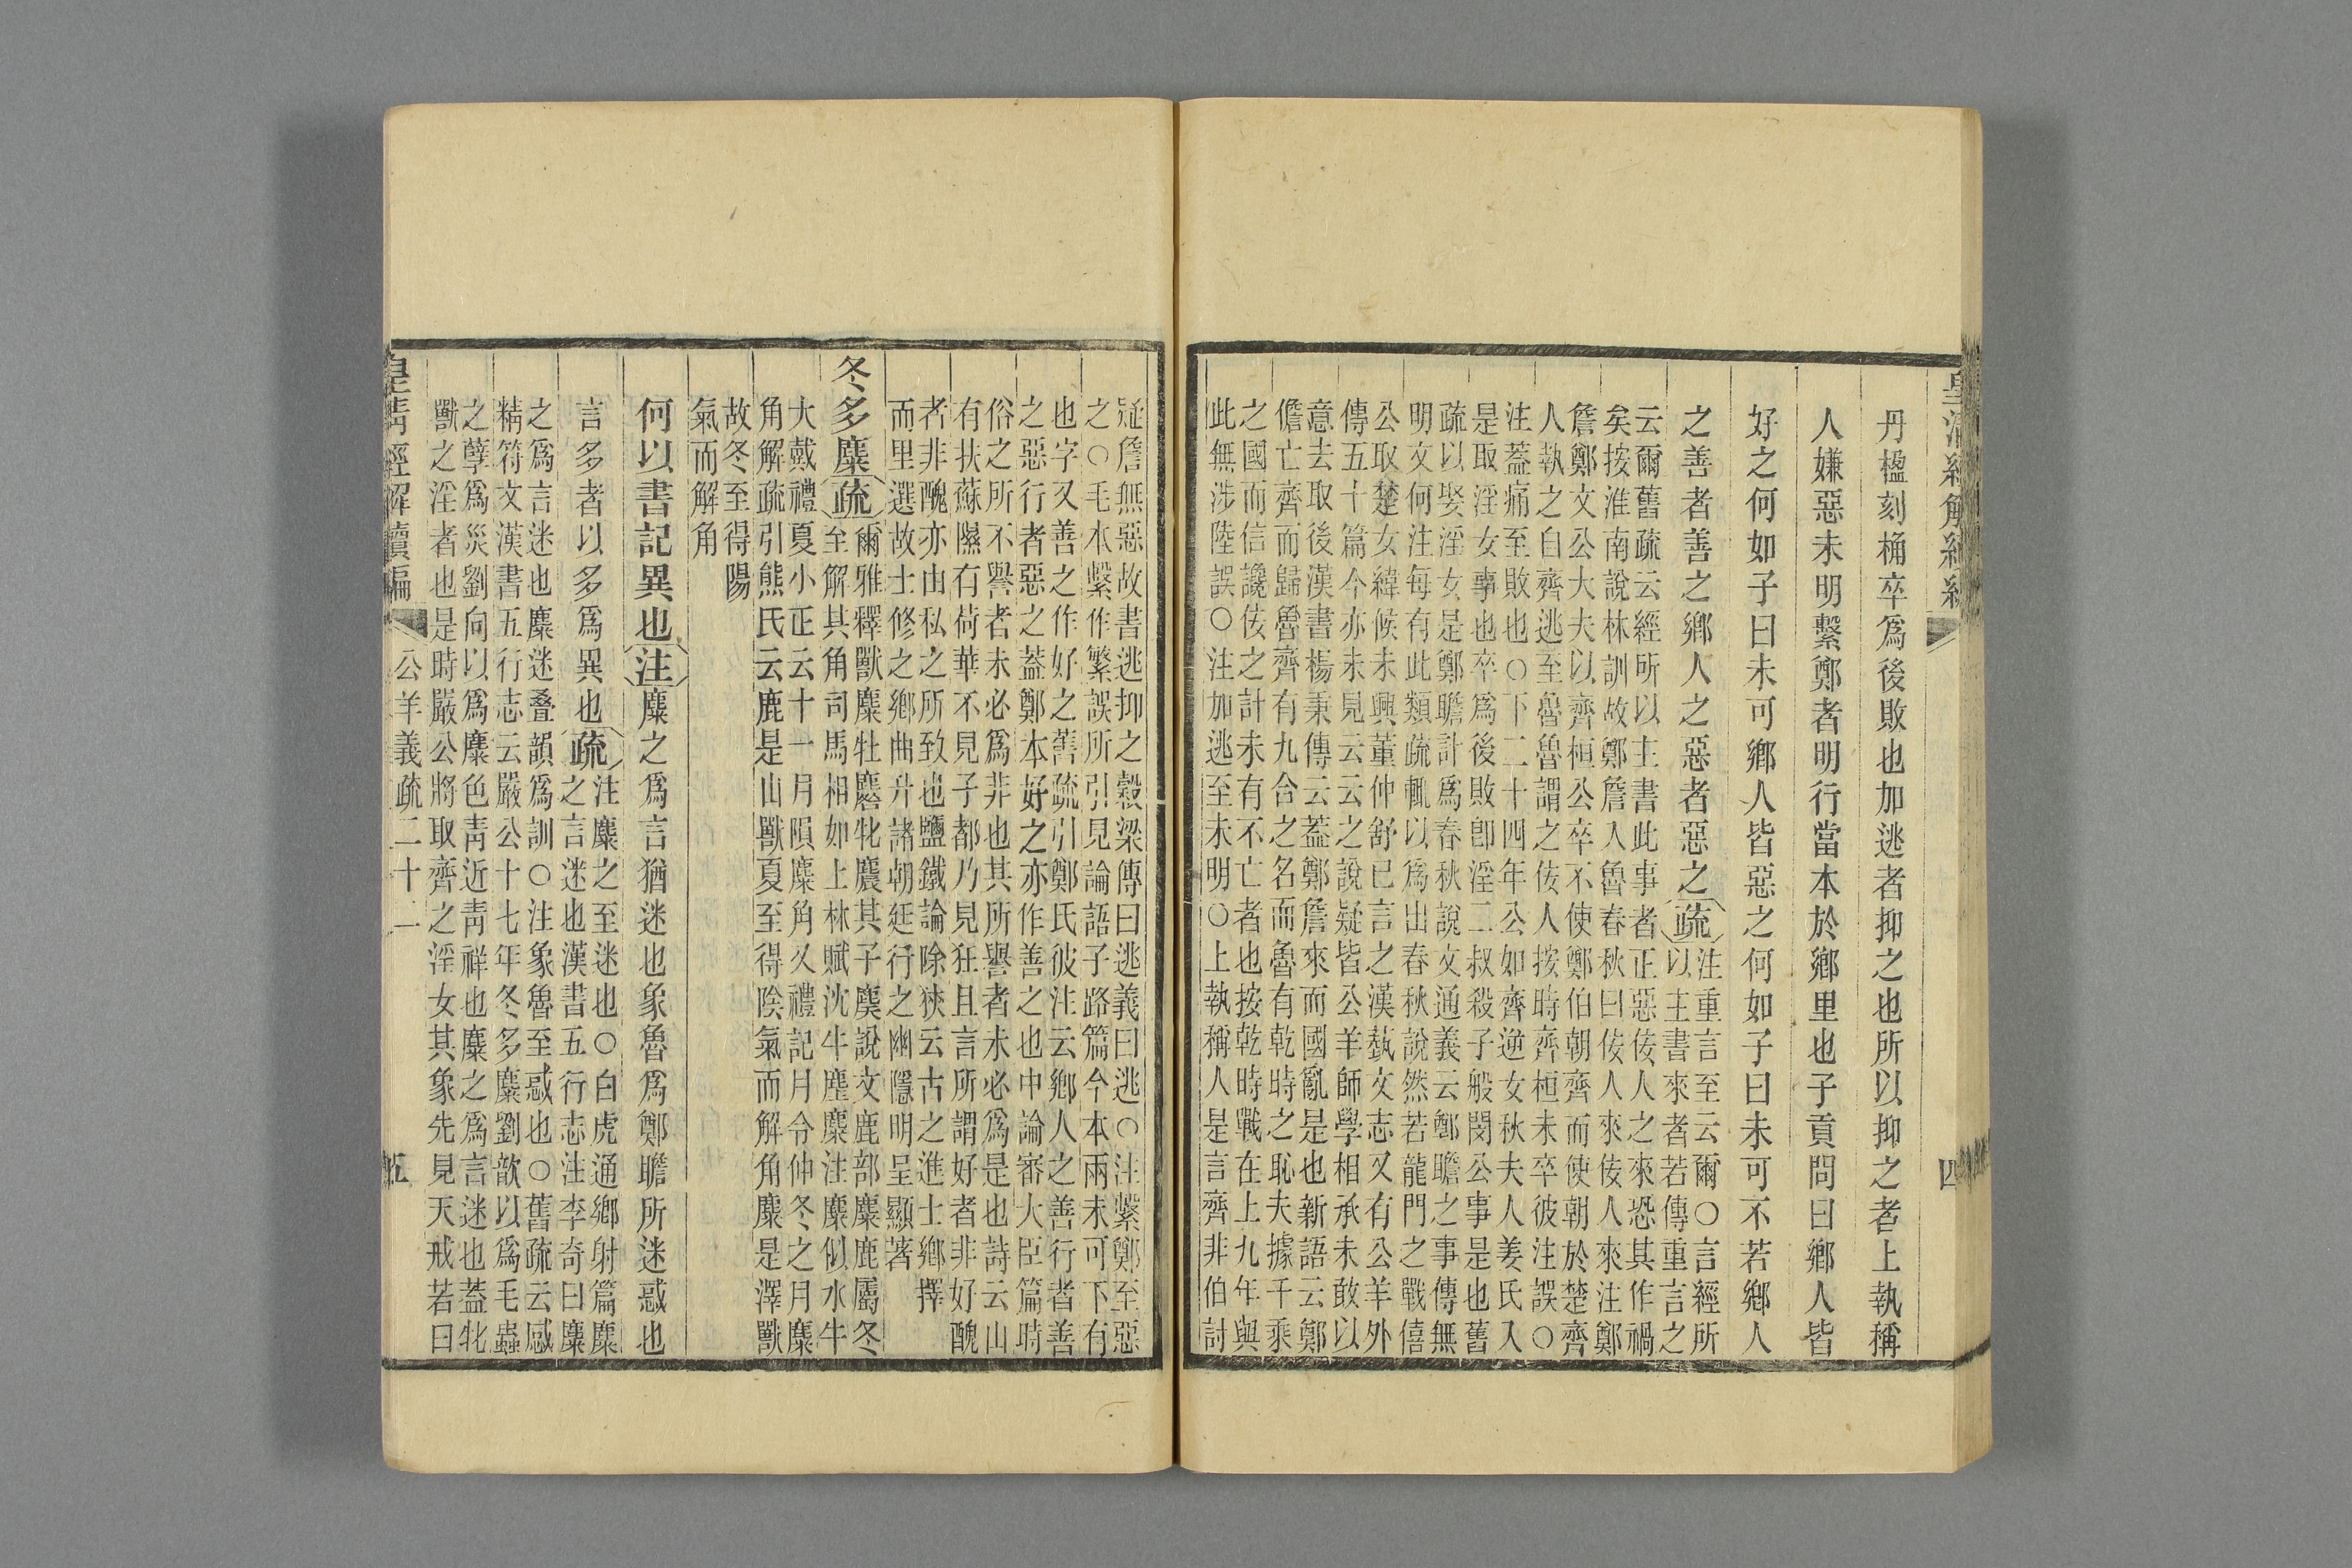 皇清經解續編
四
丹楹刻桷卒爲後敗也加逃者抑之也所以抑之者上執稱
人嫌惡未明繫鄭者明行當本於鄉里也子貢問曰鄉人皆
好之何如子曰未可鄉人皆惡之何如子曰未可不若鄉人
之善者善之鄉人之惡者惡之疏注重言至云爾○言經所
以主書來者若傳重言之
云爾舊疏云經所以主書此事者正惡佞人之來恐其作禍
矣按淮南說林訓故鄭詹入魯春秋曰佞人來佞人來注鄭
詹鄭文公大夫以齊桓公卒不使鄭伯朝齊而使朝於楚齊
人執之自齊逃至魯魯謂之佞人按時齊桓未卒彼注誤○
注蓋痛至敗也○下二十四年公如齊逆女秋夫人姜氏入
是取淫女事也卒爲後敗卽淫二叔殺子般閔公事是也舊
疏以娶淫女是鄭瞻計爲春秋說文通義云鄭瞻之事傳無
明文何注每有此類疏輒以爲出春秋說然若龍門之戰僖
公取楚女緯候未興董仲舒已言之漢藝文志又有公羊外
傳五十篇今亦未見云云之說疑皆公羊師學相承未敢以
意去取後漢書楊秉傳云蓋鄭詹來而國亂是也新語云鄭
儋亡齊而歸魯齊有九合之名而魯有乾時之恥夫據千乘
之國而信讒佞之計未有不亡者也按乾時戰在上九年與
此無涉陸誤○注加逃至未明○上執稱人是言齊非伯討
疑詹無惡故書逃抑之穀梁傳曰逃義曰逃○注繫鄭至惡
之○毛本繫作繁誤所引見論語子路篇今本兩未可下有
也字又善之作好之善疏引鄭氏彼注云鄉人之善行者善
之惡行者惡之蓋鄭本好之亦作善之也中論審大臣篇時
俗之所不譽者未必爲非也其所譽者未必爲是也詩云山
有扶蘇隰有荷華不見子都乃見狂且言所謂好者非好醜
者非醜亦由私之所致也鹽鐵論除狹云古之進士鄉擇
而里選故士修之鄉曲升諸朝廷行之幽隱明呈顯著
冬多麋疏爾雅釋獸麋牡麔牝麎其子䴠說文鹿部麋鹿屬冬
至解其角司馬相如上林賦沈牛麈麋注麋似水牛
大戴禮夏小正云十一月隕麋角又禮記月令仲冬之月麋
角解疏引熊氏云鹿是山獸夏至得陰氣而解角麋是澤獸
故冬至得陽
氣而解角
何以書記異也注麋之爲言猶迷也象魯爲鄭瞻所迷惑也
言多者以多爲異也疏注麋之至迷也○白虎通鄉射篇麋
之言迷也漢書五行志注李奇曰麋
之爲言迷也麋迷叠韻爲訓○注象魯至惑也○舊疏云感
精符文漢書五行志云嚴公十七年冬多麋劉歆以爲毛蟲
之孽爲災劉向以爲麋色青近青祥也麋之爲言迷也蓋牝
獸之淫者也是時嚴公將取齊之淫女其象先見天戒若曰
皇清經解續編
公羊義疏二十一
五